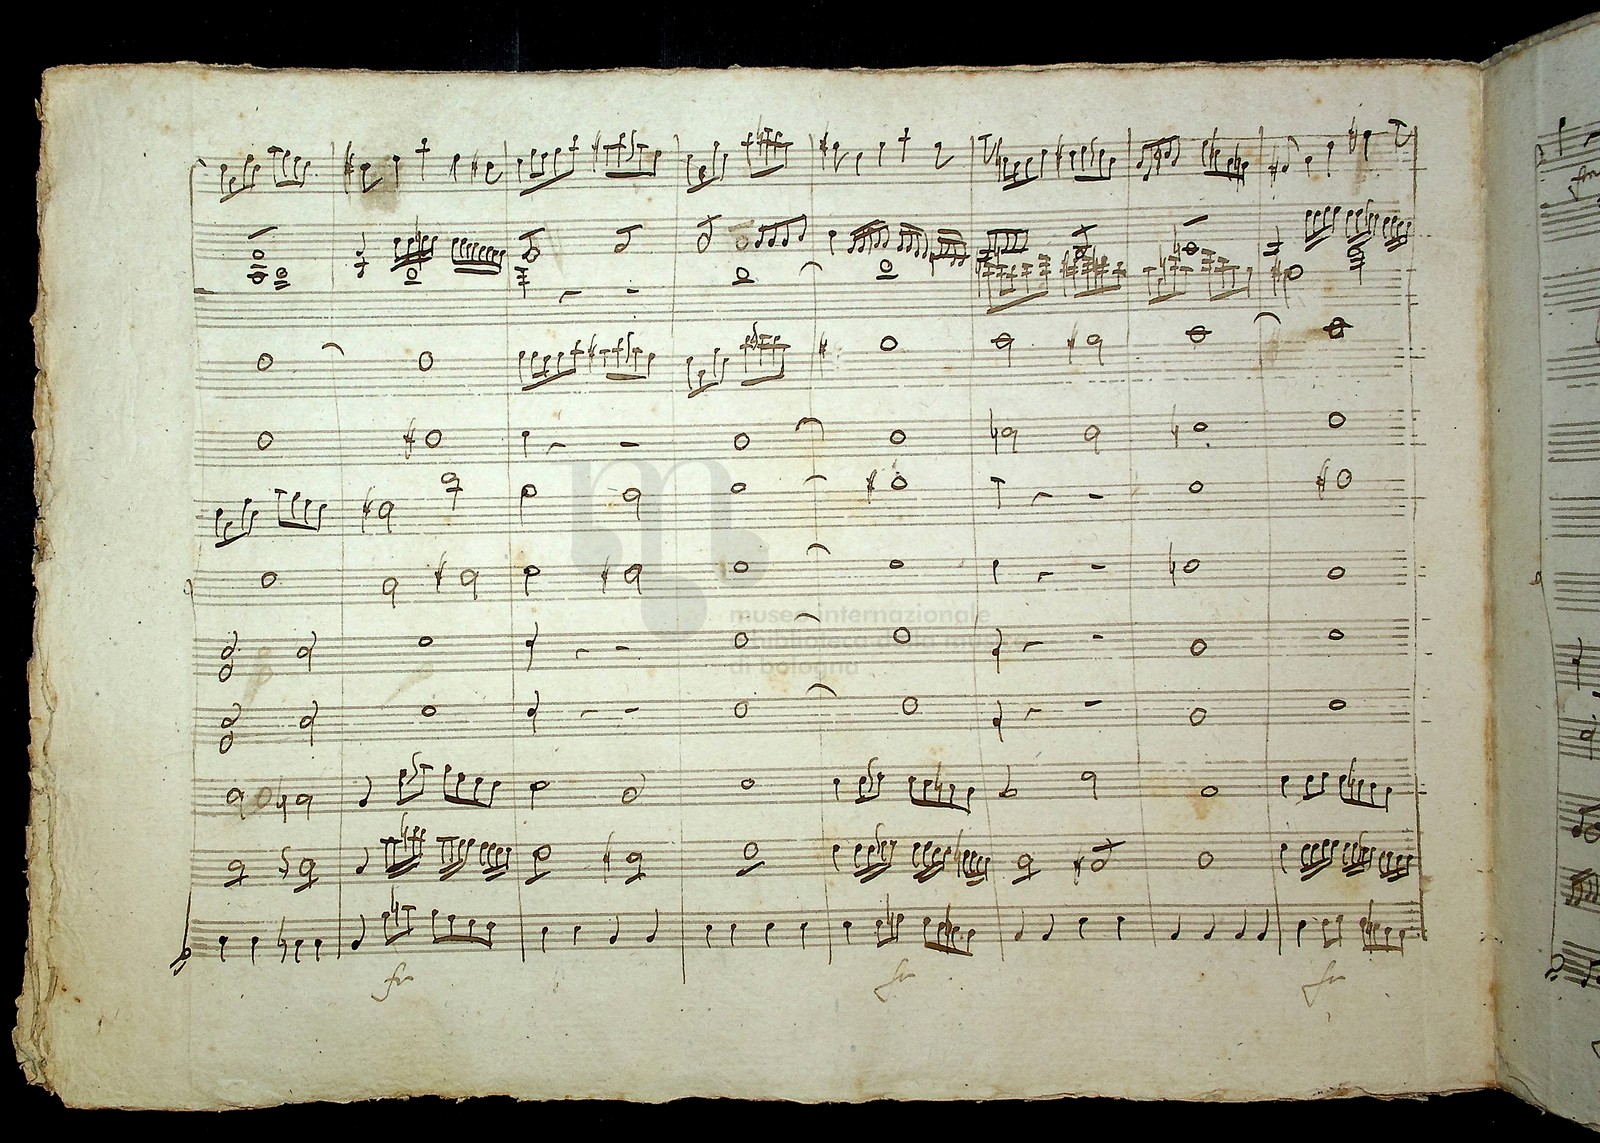 museo internazionale
e biblioteca della musica
di bologna
fr
fr
fr